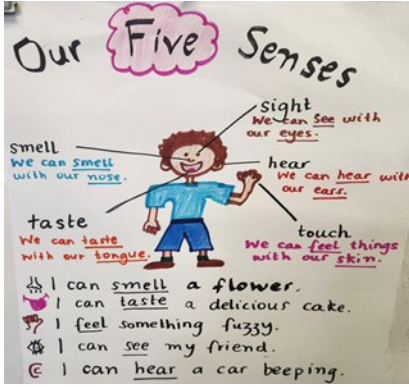 Our Five Senses
sight
We can see with
our eyes.
smell
We can smell
with our nose.
hear
We can hear with
our ears.
taste
We can taste
with our tongue.
touch
We can feel things
with our skin.
I can smell a flower.
I can taste a delicious cake.
I feel something fuzzy.
I can see my friend.
I can hear a car beeping.